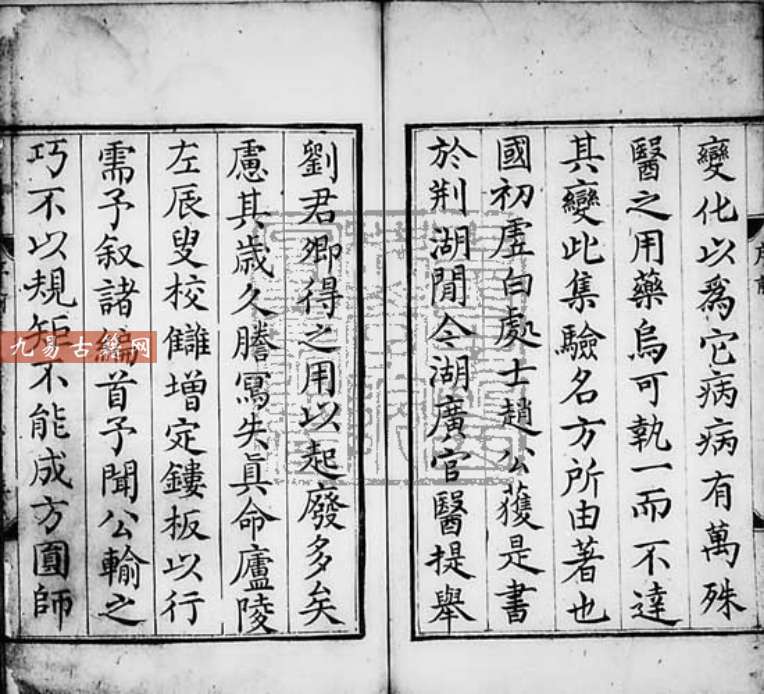 變化以爲它病病有萬殊
醫之用藥烏可執一而不達
其變此集驗名方所由著也
國初虛白處士趙公獲是書
於荆湖閒今湖廣官醫提舉
劉君卿得之用以起廢多矣
慮其歲久謄寫失眞命廬陵
左辰叟校讎增定鏤板以行
需予叙諸編首予聞公輸之
巧不以規矩不能成方圓師
九易古籍网